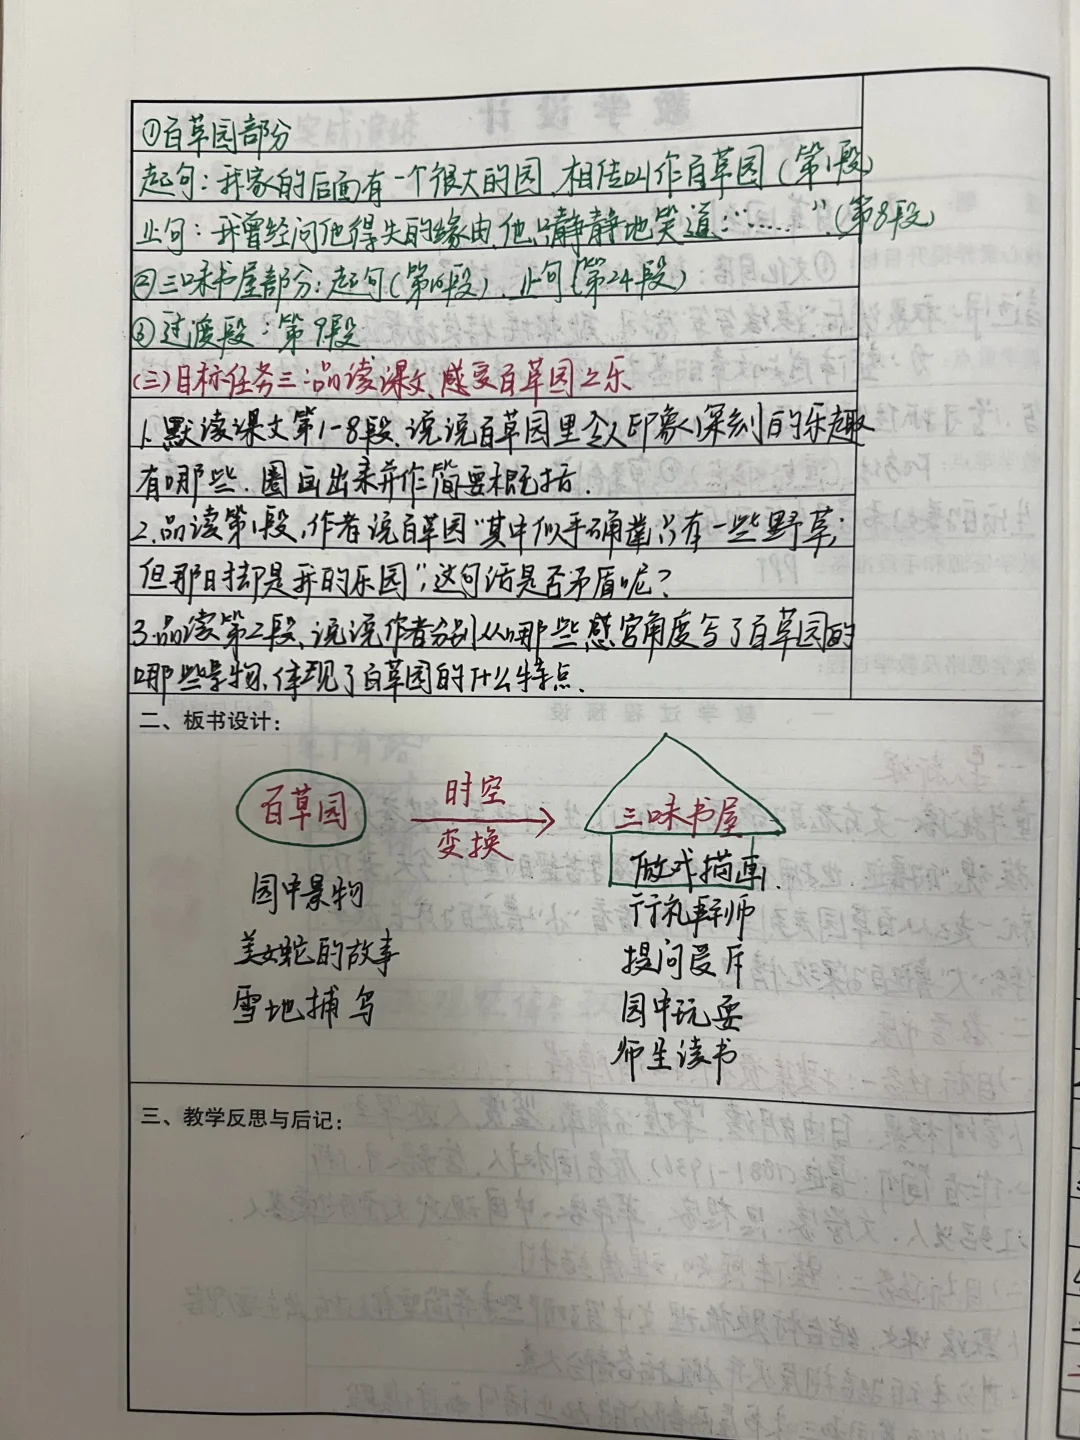 ①百草园部分
起句：我家的后面有一个很大的园,相传叫作百草园(第1段)
止句：我曾经问他得失的缘由,他只静静地笑道：“……”.(第8段)
②三味书屋部分：起句(第10段),止句(第24段)
③过渡段：第9段
(三)目标任务三：品读课文,感受百草园之乐
1.默读课文第1-8段,说说百草园里令人印象深刻的乐趣
有哪些.圈画出来并作简要概括.
2.品读第1段,作者说百草园“其中似乎确凿只有一些野草;
但那时却是我的乐园”,这句话是否矛盾呢?
3.品读第2段,说说作者分别从哪些感官角度写了百草园的
哪些景物,体现了百草园的什么特点.
二、板书设计：
百草园 时空变换 三味书屋
园中景物
美女蛇的故事
雪地捕鸟
做戏描画.
行礼拜师
提问受斥
园中玩耍
师生读书
三、教学反思与后记：